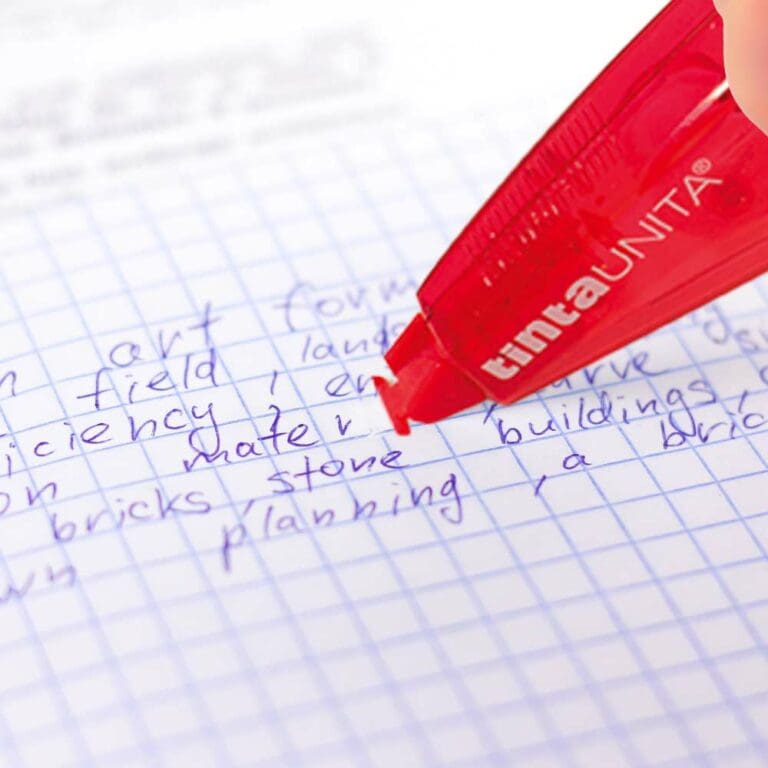 art form
field lands
iciency, en urve
on mater buildings,
bricks, stone , a bric
wn planning
tintaUNITA®